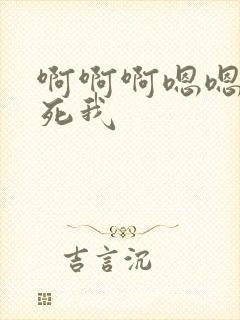 啊啊啊嗯嗯
死我
吉言沉